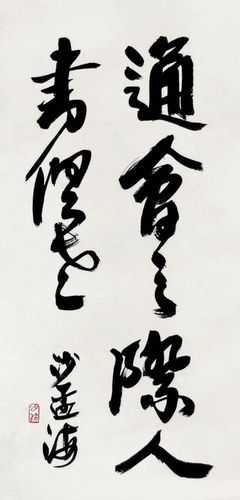 通會之際人
書俱老
沙孟海